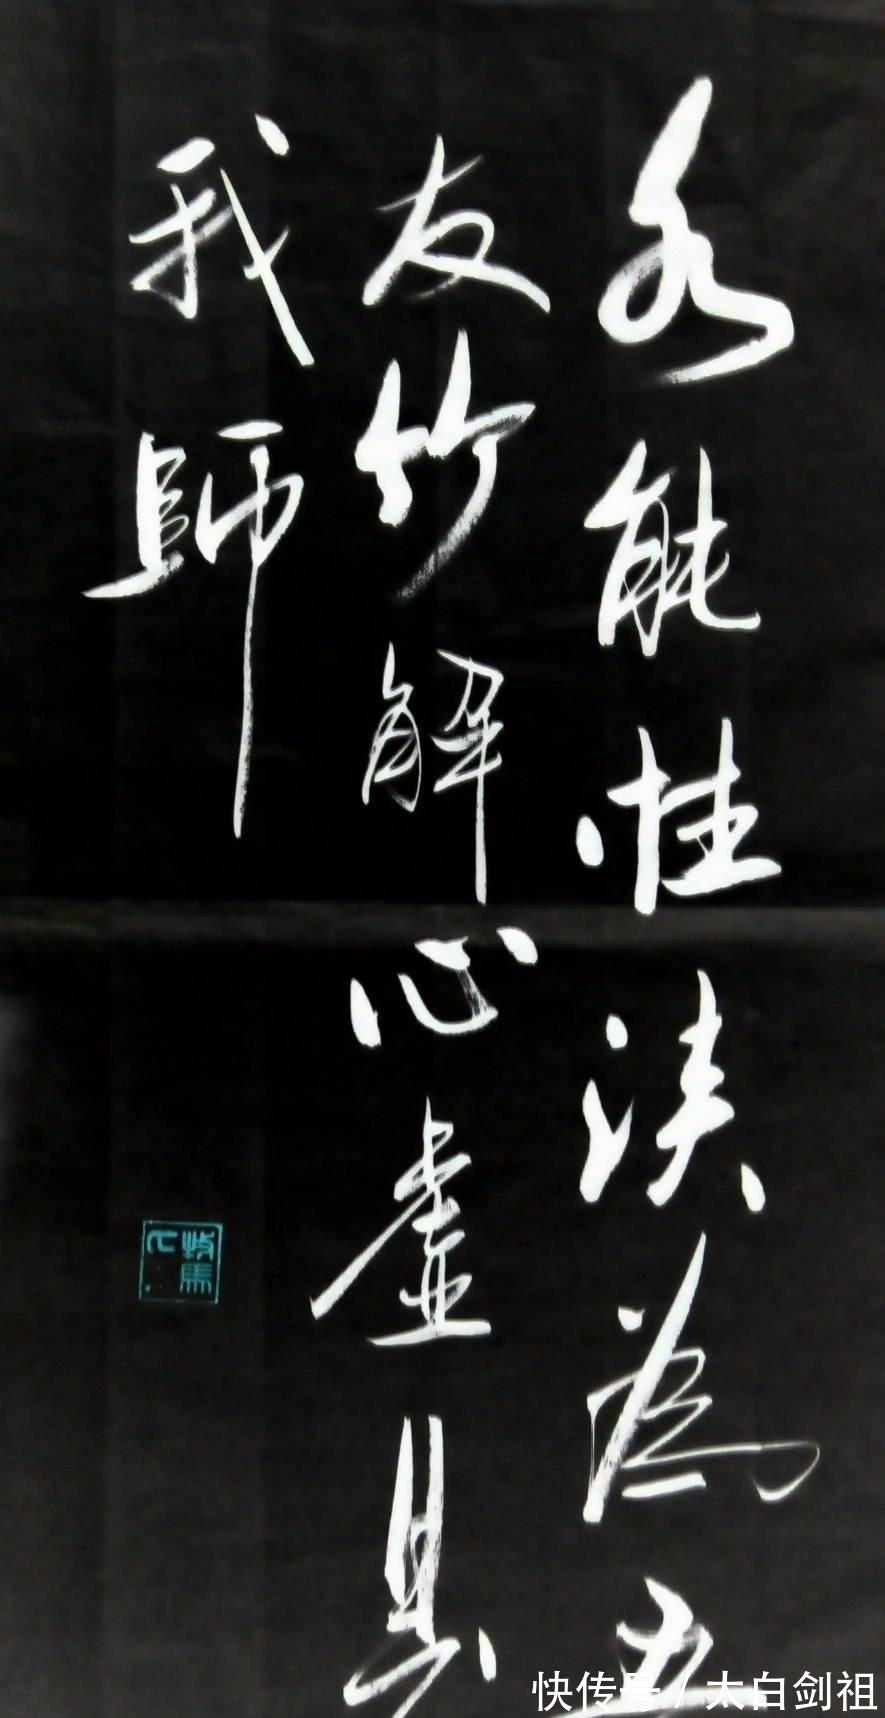 水能性淡為吾
友竹解心虛是
我師
牧馬人
快传号 / 太白剑祖